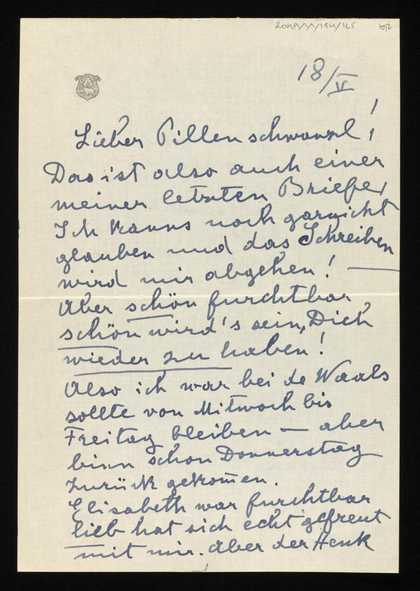 18/V
Lieber Pillenschwanzl!
Das ist also auch einer
meiner letzten Briefe,
Ich kanns noch garnicht
glauben und das Schreiben
wird mir abgehen! —
Aber schön furchtbar,
schön wird's sein, Dich
wieder zu haben!
Also ich war bei de Waals
sollte von Mitwoch bis
Freitag bleiben — aber
binn schon Donnerstag
zurück gekomen.
Elisabeth war furchtbar
lieb hat sich echt gefreut
mit mir. Aber der Henk